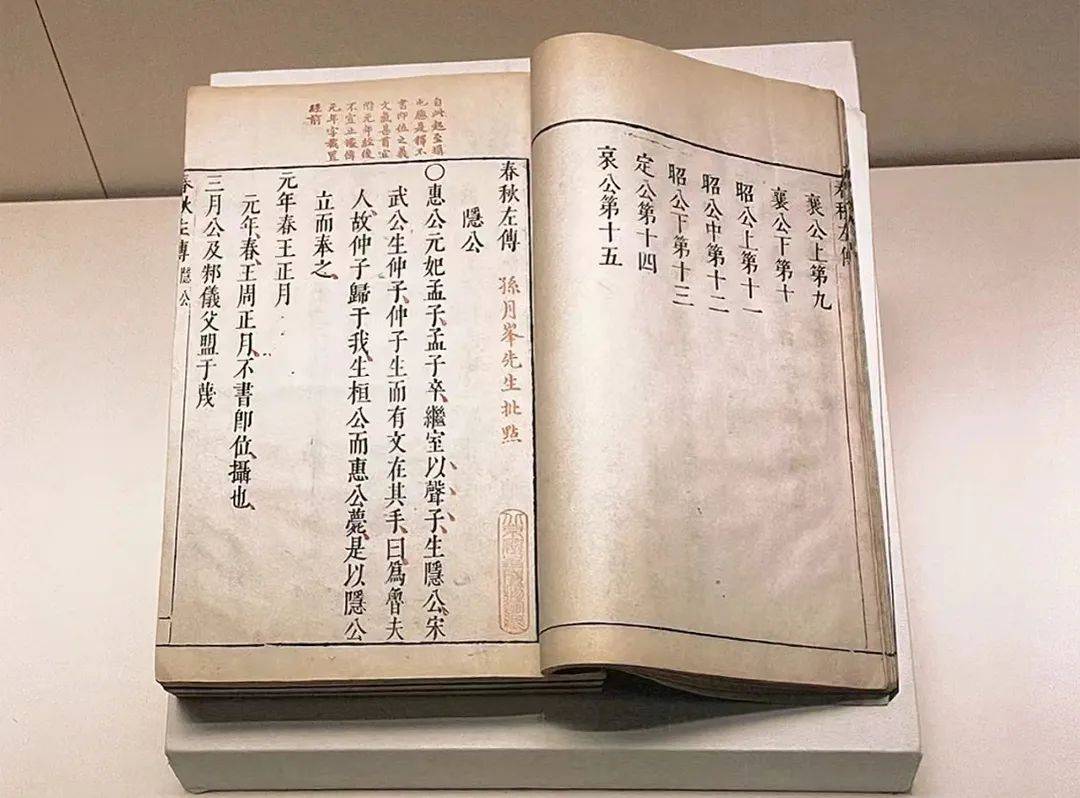 春秋左傳
襄公上第九
襄公下第十
昭公上第十一
昭公中第十二
昭公下第十三
定公第十四
哀公第十五
自此起至攝
也應是釋不
書即位之義
文氣甚
附元年於後
不宜止據傳
元年字截置
經前
春秋左傳 孫月峯先生批點
隱公
○惠公元妃孟子、孟子卒、繼室以聲子、生隱公、宋
武公生仲子、仲子生而有文在其手、曰爲魯夫
人、故仲子歸于我、生桓公而惠公薨、是以隱公
立而奉之、
元年春王正月
元年、春、王周正月、不書即位、攝也、
三月公及邾儀父盟于蔑
春秋左傳 隱公